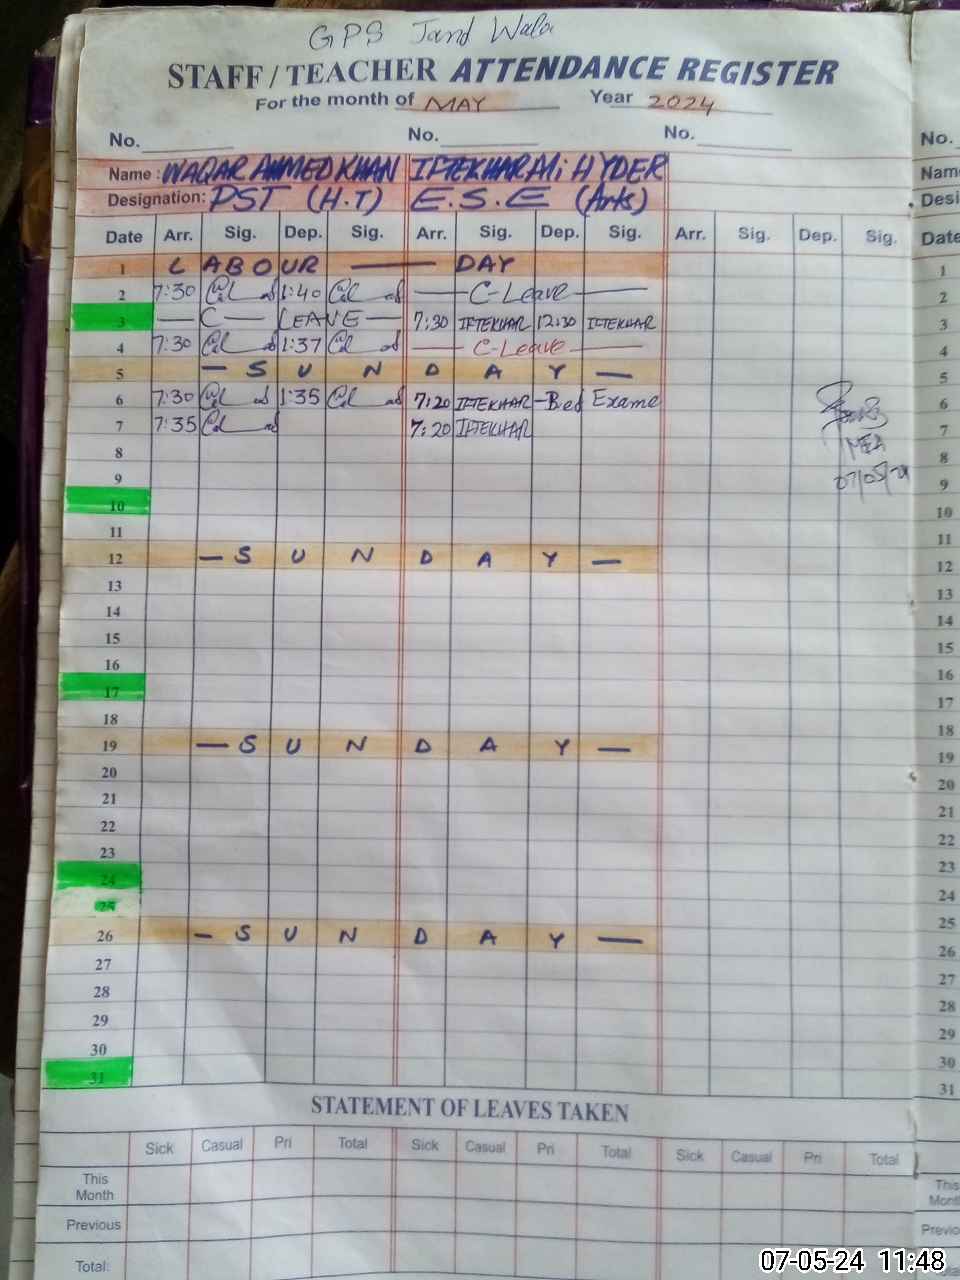 GPS Jand Wala
STAFF / TEACHER ATTENDANCE REGISTER
For the month of MAY Year 2024
No. No. No. No.
Name : WAQAR AHMED KHAN IFTEKHAR Ali HYDER
Designation: PST (H.T) E.S.E (Arts)
Date Arr. Sig. Dep. Sig. Arr. Sig. Dep. Sig. Arr. Sig. Dep. Sig. Date
1 LABOUR — DAY 1
2 7:30 1:40 — C-Leave — 2
3 — C — LEAVE — 7:30 IFTEKHAR 12:30 IFTEKHAR 3
4 7:30 1:37 — C-Leave — 4
5 — S U N D A Y — 5
6 7:30 1:35 7:20 IFTEKHAR — Bed Exame 6
7 7:35 7:20 IFTEKHAR 7
MEA
8 8
07/05/24
9 9
10 10
11 11
12 — S U N D A Y — 12
13 13
14 14
15 15
16 16
17 17
18 18
19 — S U N D A Y — 19
20 20
21 21
22 22
23 23
24 24
25 25
26 — S U N D A Y — 26
27 27
28 28
29 29
30 30
31 31
STATEMENT OF LEAVES TAKEN
Sick Casual Pri Total Sick Casual Pri Total Sick Casual Pri Total
This Month
Previous
Total:
07-05-24 11:48